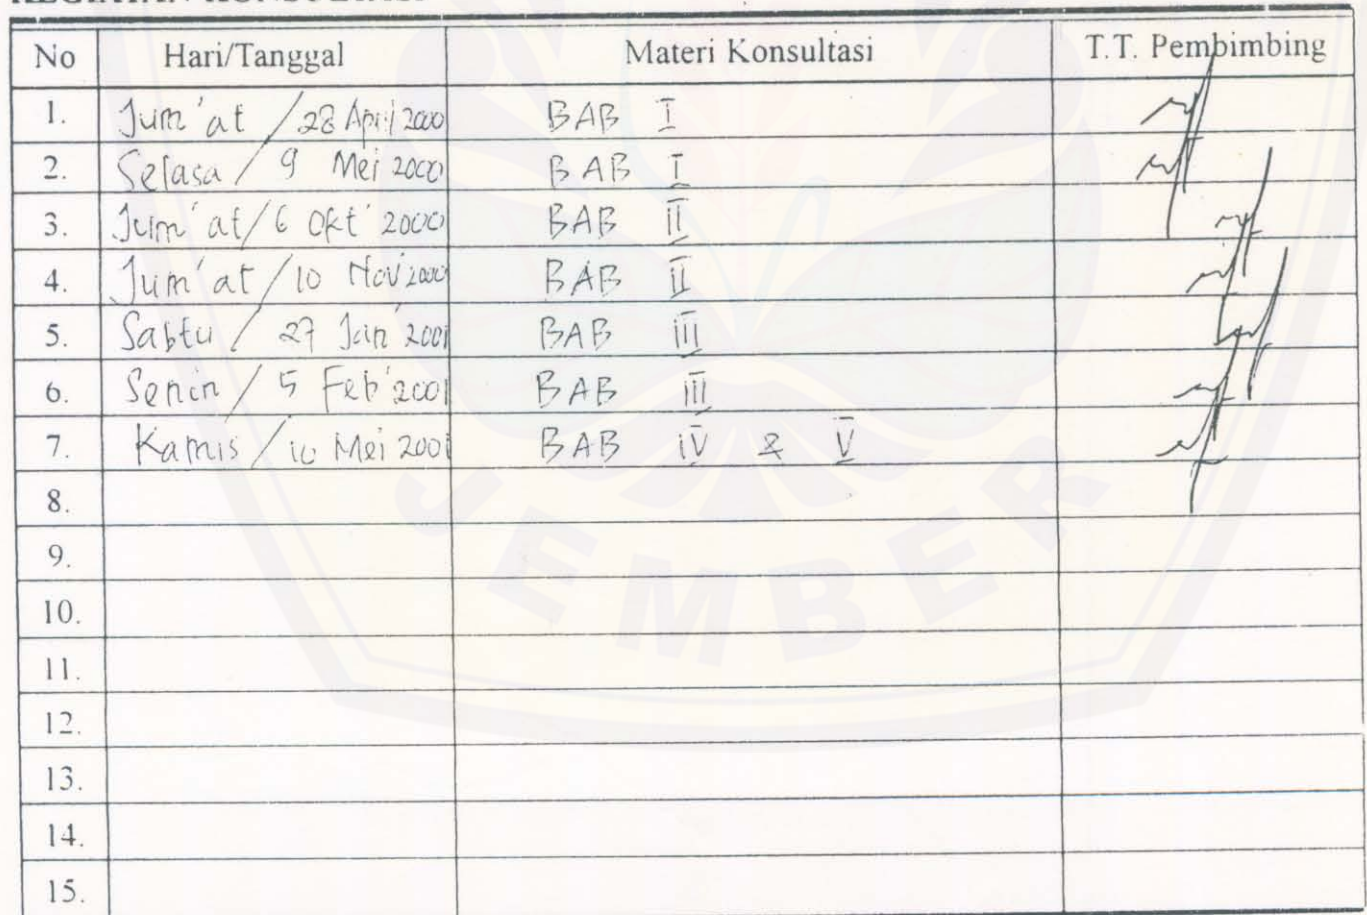 KEGIATAN KONSULTASI
No Hari/Tanggal Materi Konsultasi T.T. Pembimbing
1. Jum'at / 28 April 2000 BAB I
2. Selasa / 9 Mei 2000 BAB I
3. Jum'at / 6 Okt' 2000 BAB II
4. Jum'at / 10 Nov' 2000 BAB II
5. Sabtu / 27 Jan' 2001 BAB III
6. Senin / 5 Feb' 2001 BAB III
7. Kamis / 10 Mei 2001 BAB IV & V
8.
9.
10.
11.
12.
13.
14.
15.
JEMBER